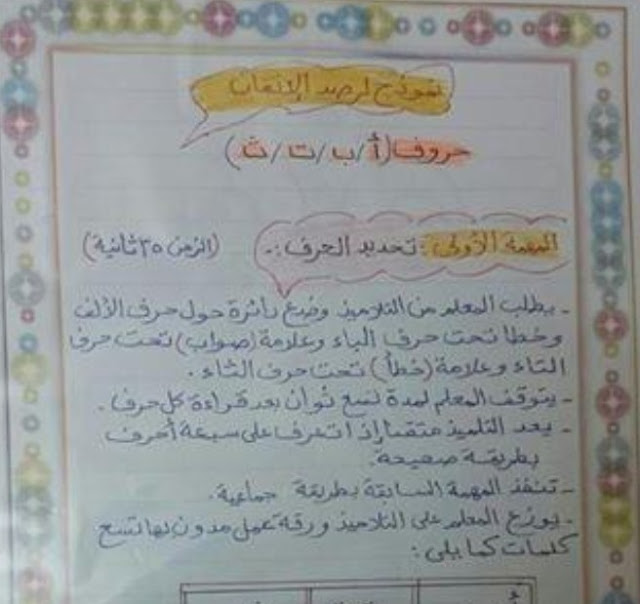 نموذج لرصد الإتقان
حروف (أ/ب/ت/ث)
المهمة الأولى: تحديد الحرف:- (الزمن ٣٥ ثانية)
- يطلب المعلم من التلاميذ وضع دائرة حول حرف الألف
وخطا تحت حرف الباء وعلامة (صواب) تحت حرف
التاء وعلامة (خطأ) تحت حرف الثاء.
- يتوقف المعلم لمدة تسع ثوان بعد قراءة كل حرف.
- يعد التلميذ متقنا إذا تعرف على سبعة أحرف
بطريقة صحيحة.
- تنفذ المهمة السابقة بطريقة جماعية.
- يوزع المعلم على التلاميذ ورقة عمل مدون بها تسع
كلمات كما يلى: